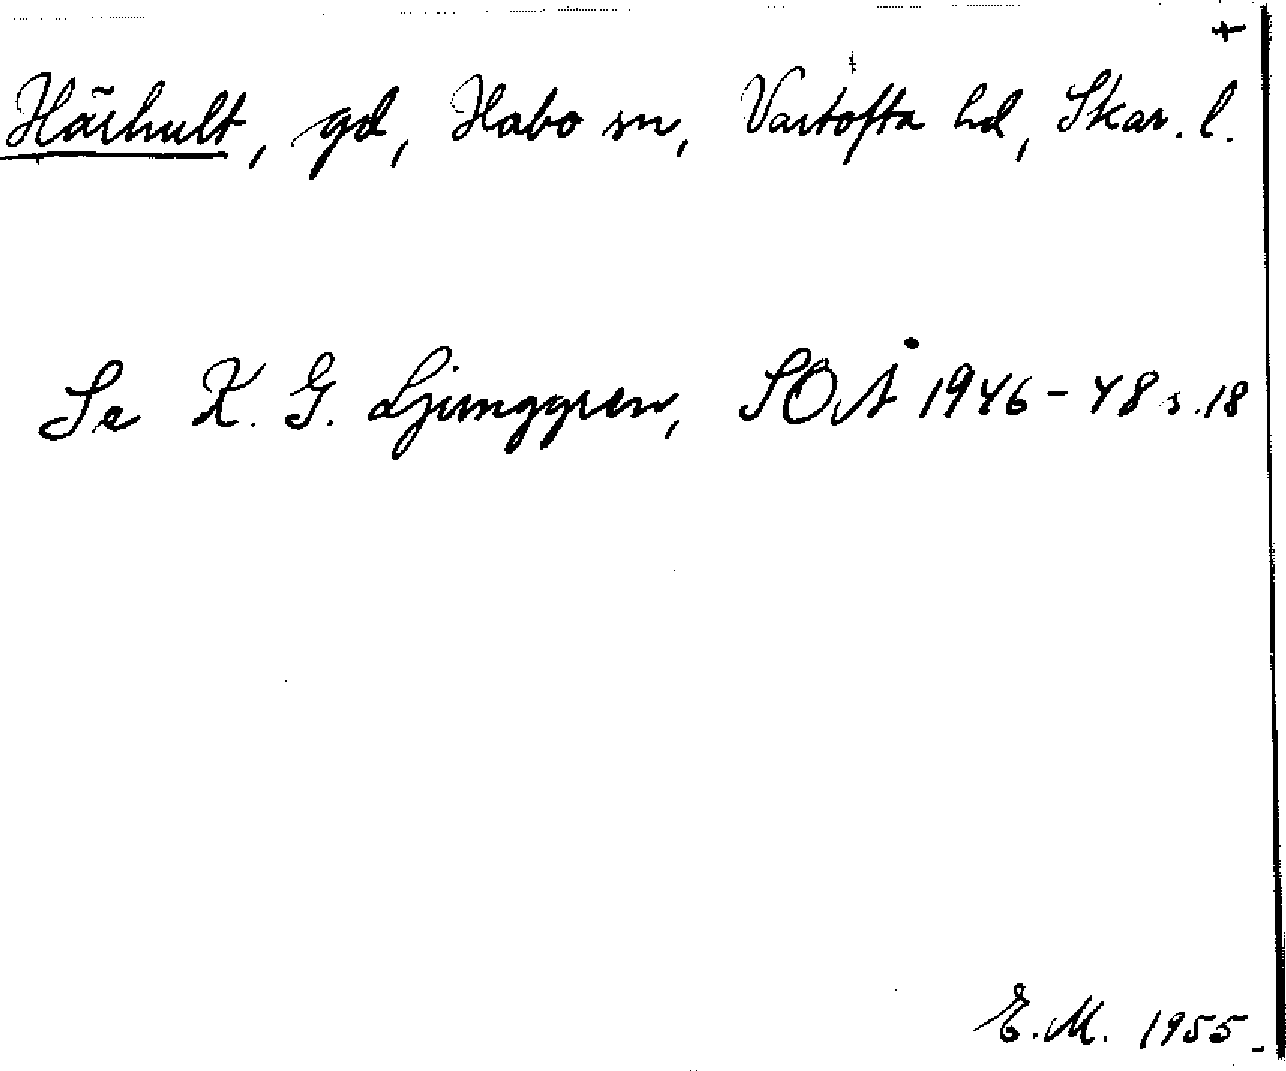 Härhult, gd, Habo sn, Vartofta hd, Skar. l.
Se K. G. Ljunggren, SOÅ 1946-48 s. 18
E. M. 1955